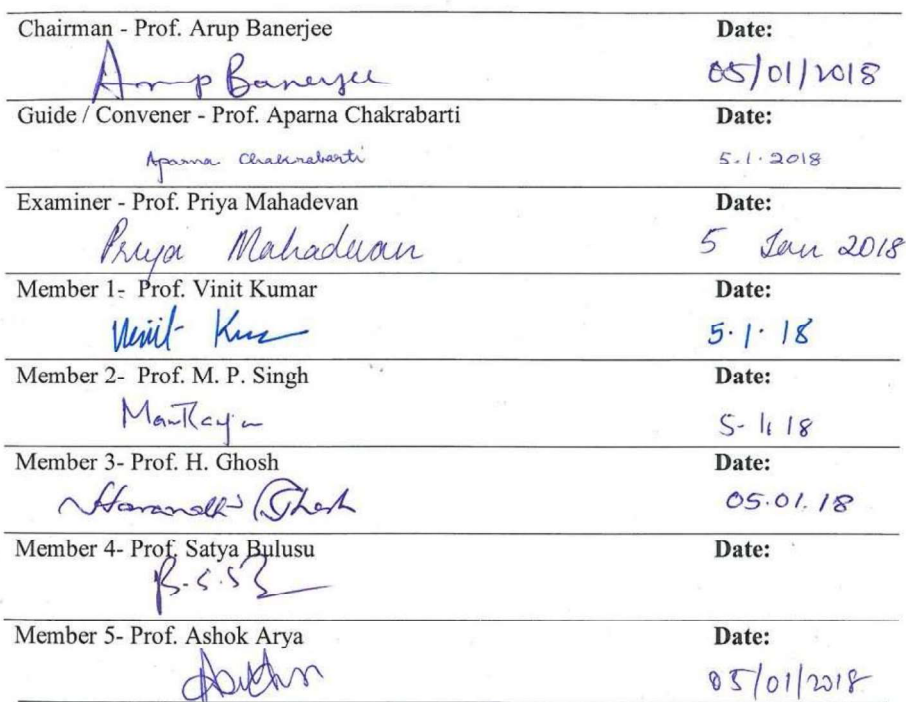 Chairman - Prof. Arup Banerjee Date:
Arup Banerjee 05/01/2018
Guide / Convener - Prof. Aparna Chakrabarti Date:
Aparna Chakrabarti 5.1.2018
Examiner - Prof. Priya Mahadevan Date:
Priya Mahadevan 5 Jan 2018
Member 1- Prof. Vinit Kumar Date:
Vinit Kum 5.1.18
Member 2- Prof. M. P. Singh Date:
5-1.18
Member 3- Prof. H. Ghosh Date:
Ghosh 05.01.18
Member 4- Prof. Satya Bulusu Date:
Member 5- Prof. Ashok Arya Date:
05/01/2018